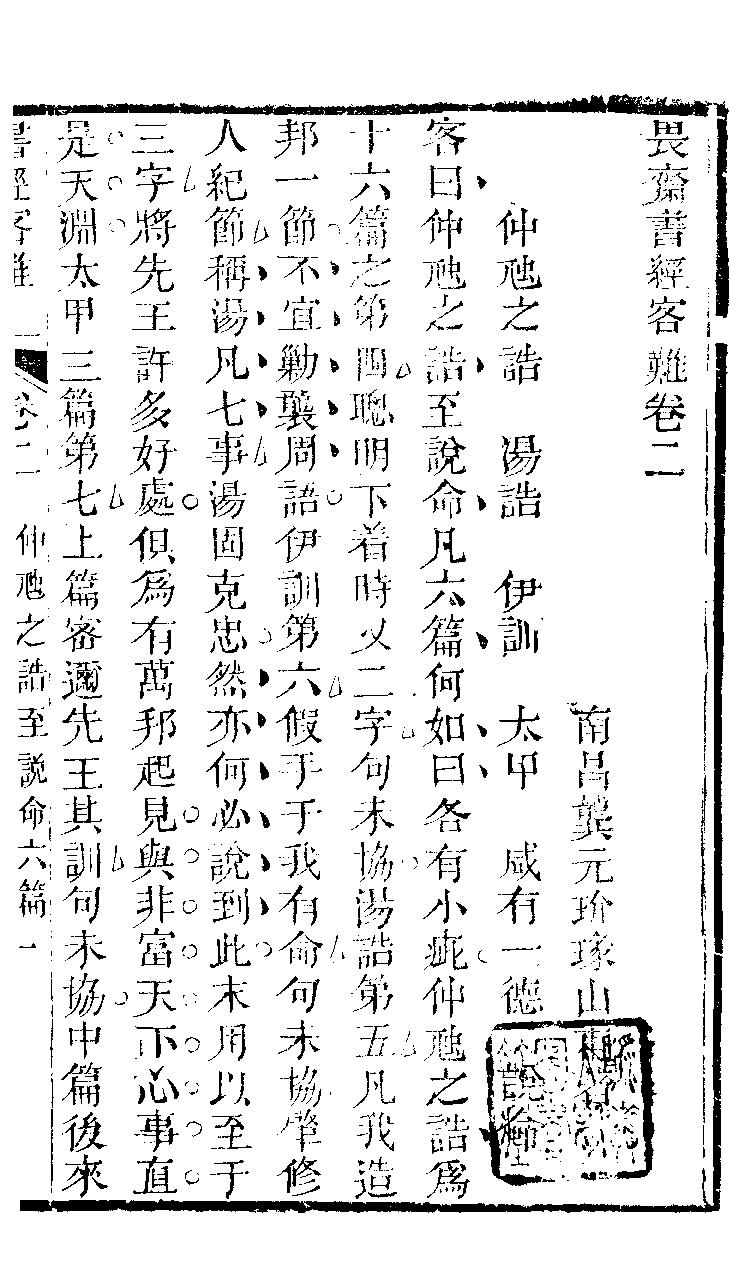 畏齋書經客難卷二
南昌龔元玠琢山
仲虺之誥　湯誥　伊訓　太甲　咸有一德　說命
客曰仲虺之誥至說命凡六篇何如曰各有小疵仲虺之誥爲
十六篇之第四聰明下着時乂二字句未協湯誥第五凡我造
邦一節不宜勦襲周語伊訓第六假手于我有命句未協肇修
人紀節稱湯凡七事湯固克忠然亦何必說到此末用以至于
三字將先王許多好處俱爲有萬邦起見與非富天下心事直
是天淵太甲三篇第七上篇密邇先王其訓句未協中篇後來
書經客難　卷二　仲虺之誥至説命六篇　一